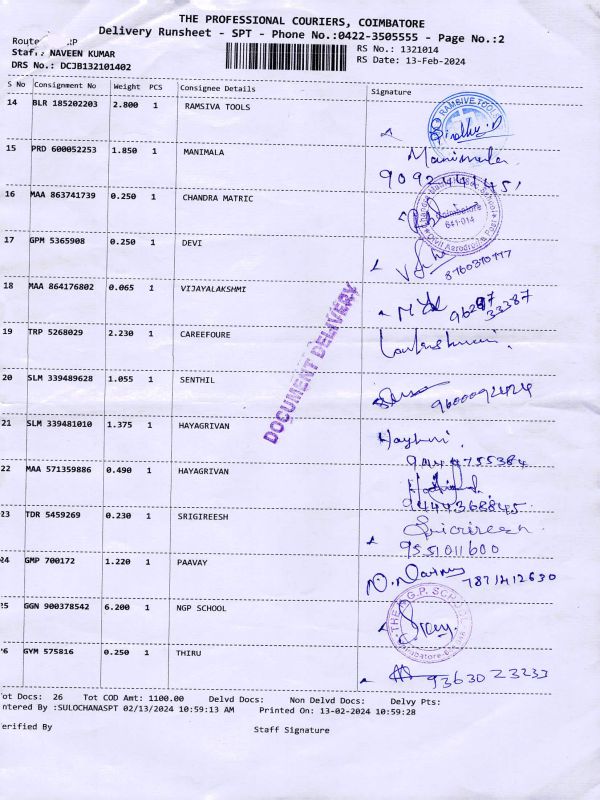 THE PROFESSIONAL COURIERS, COIMBATORE
Delivery Runsheet - SPT - Phone No.:0422-3505555 - Page No.:2
Staff: NAVEEN KUMAR
RS No.: 1321014
DRS No.: DCJB132101402
RS Date: 13-Feb-2024
S No Consignment No Weight PCS Consignee Details Signature
14 BLR 185202203 2.800 1 RAMSIVA TOOLS
15 PRD 600052253 1.850 1 MANIMALA Manimala
16 MAA 863741739 0.250 1 CHANDRA MATRIC
Coimbatore
641-014
17 GPM 5365908 0.250 1 DEVI
8760370777
18 MAA 864176802 0.065 1 VIJAYALAKSHMI
DOCUMENT DELIVERY
19 TRP 5268029 2.230 1 CAREEFOURE
20 SLM 339489628 1.055 1 SENTHIL 9600092424
21 SLM 339481010 1.375 1 HAYAGRIVAN
9444755384
22 MAA 571359886 0.490 1 HAYAGRIVAN
9444368845
23 TDR 5459269 0.230 1 SRIGIREESH
9551011600
24 GMP 700172 1.220 1 PAAVAY
7871412630
25 GGN 900378542 6.200 1 NGP SCHOOL
26 GYM 575816 0.250 1 THIRU 9363023233
Tot Docs: 26 Tot COD Amt: 1100.00 Delvd Docs: Non Delvd Docs: Delvy Pts:
Entered By :SULOCHANASPT 02/13/2024 10:59:13 AM Printed On: 13-02-2024 10:59:28
Verified By Staff Signature